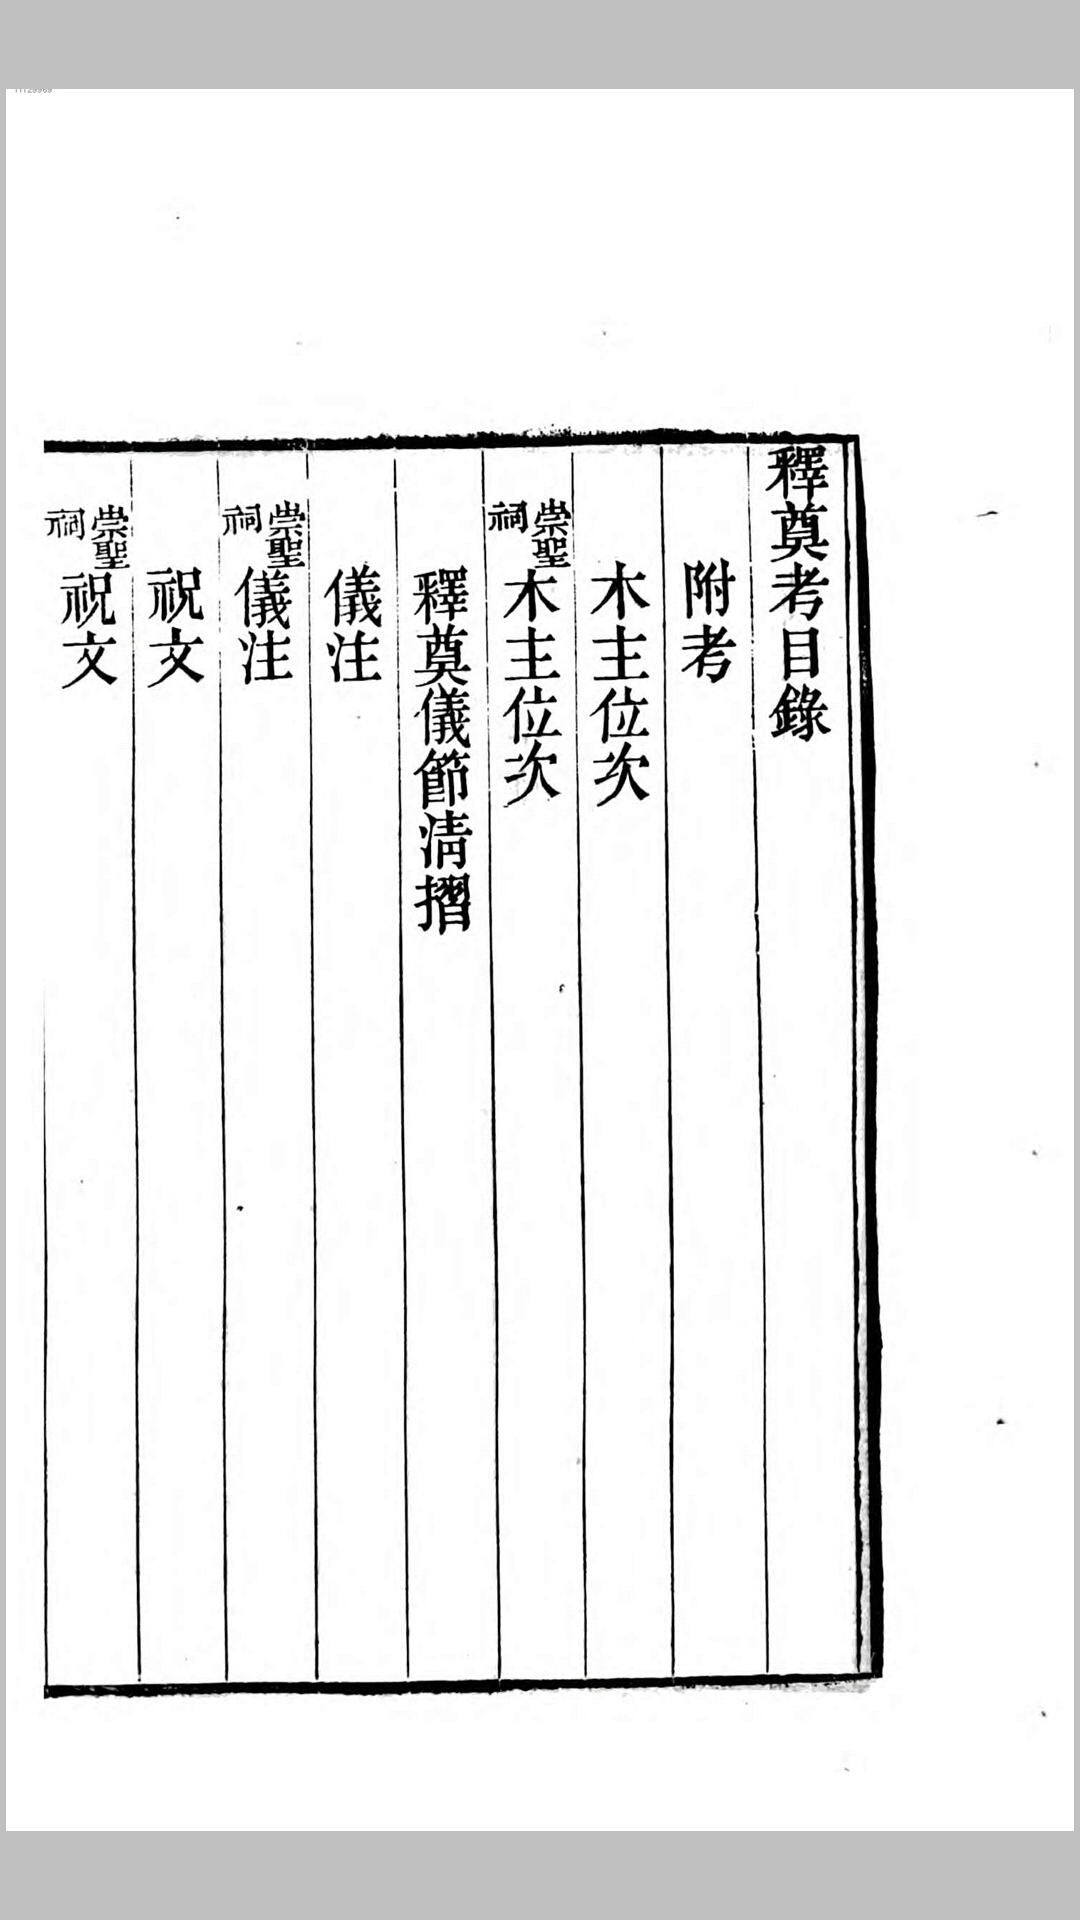 釋奠考目錄
附考
木主位次
崇聖祠木主位次
釋奠儀節清摺
儀注
崇聖祠儀注
祝文
崇聖祠祝文